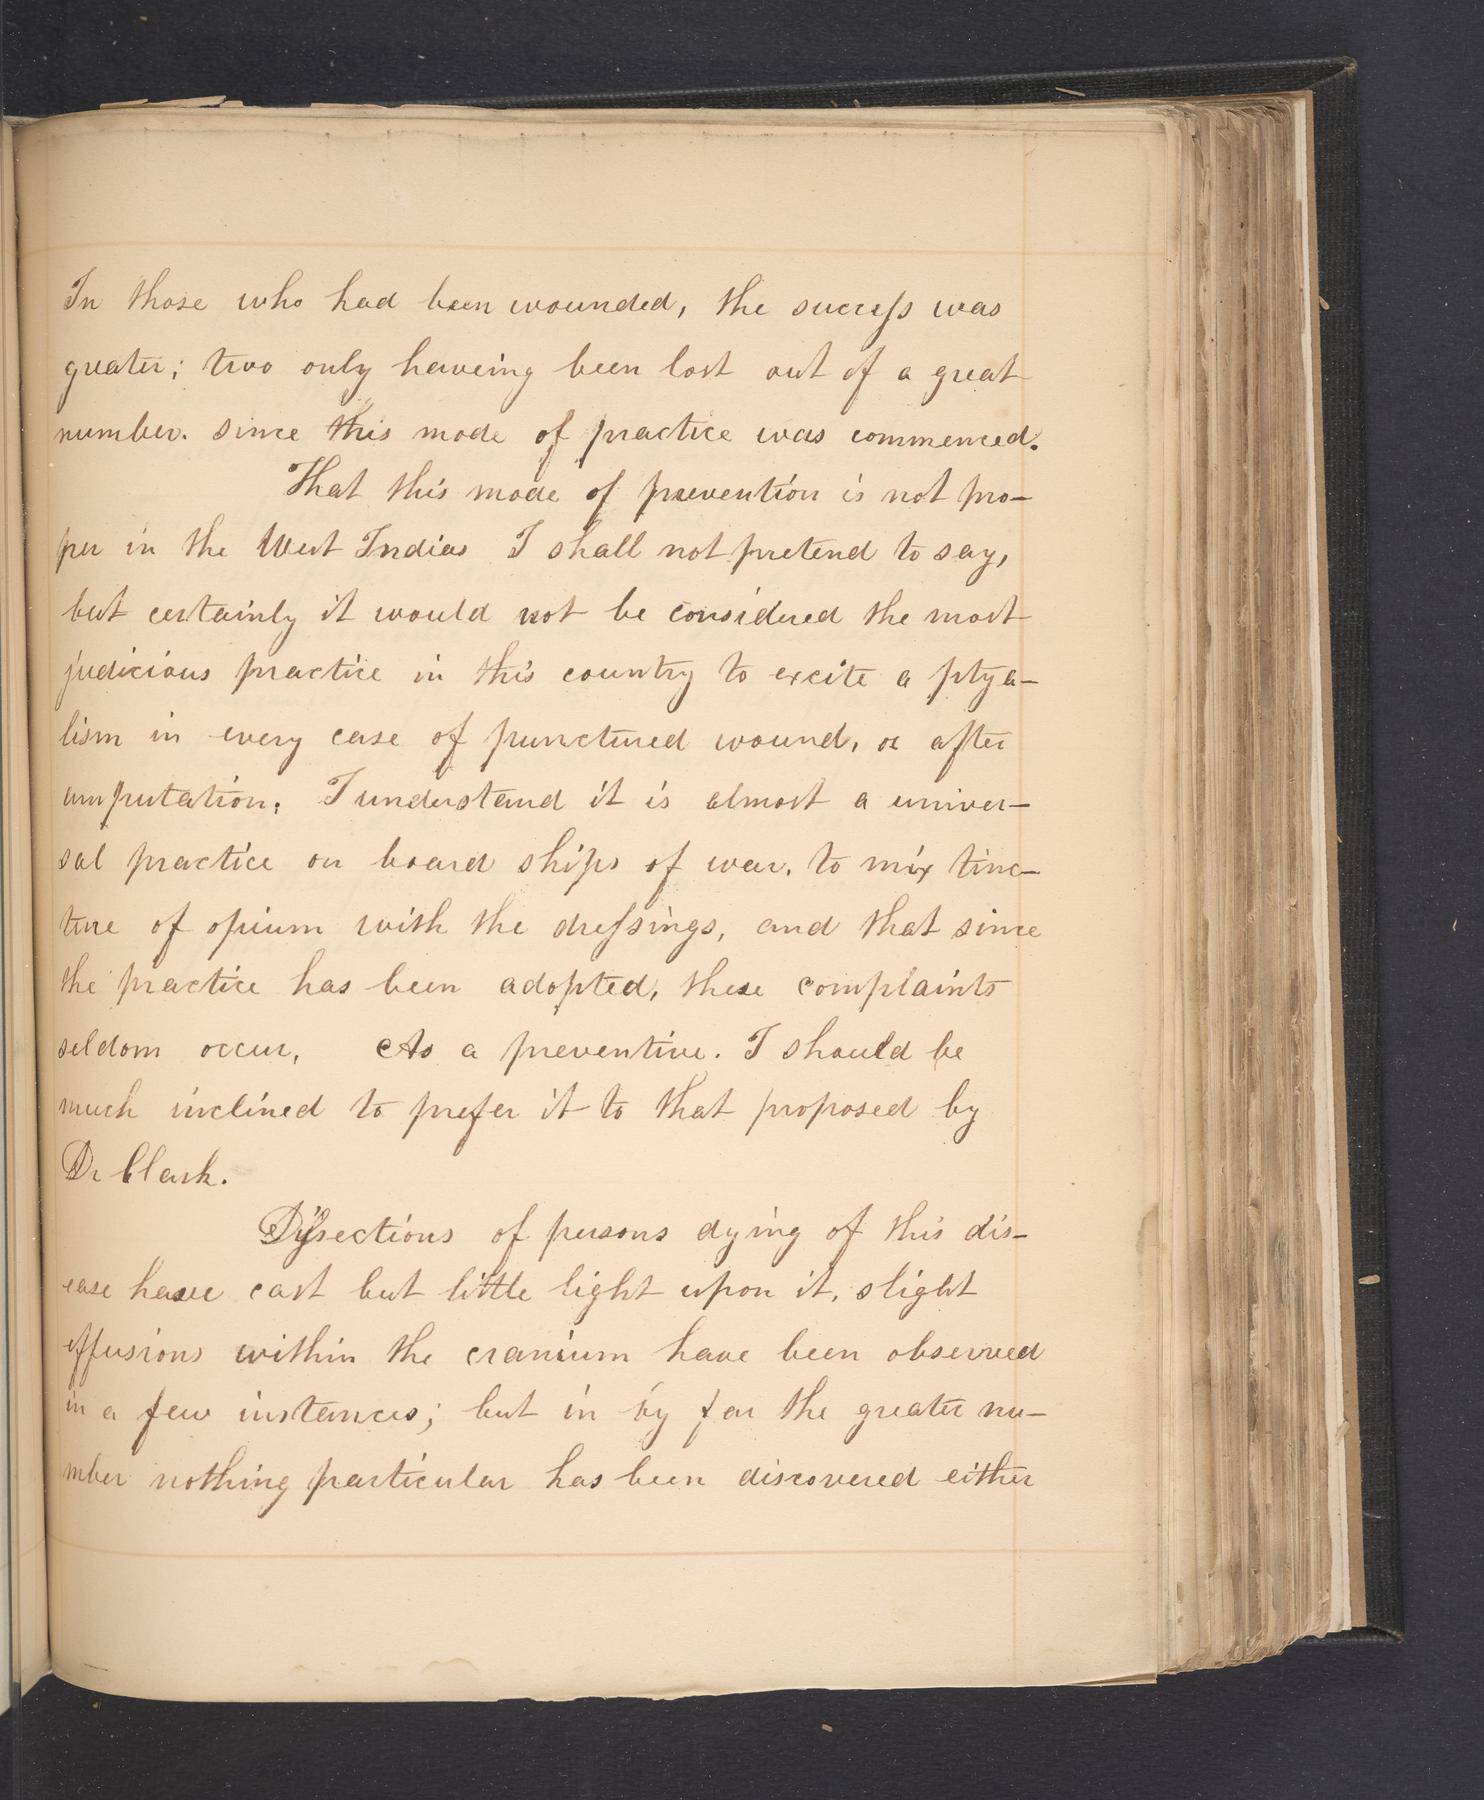 In those who had been wounded, the success was
greater; two only haveing been lost out of a great
number. since this mode of practice was commenced.
That this mode of prevention is not pro-
per in the West Indias I shall not pretend to say,
but certainly it would not be considered the most
judicious practice in this country to excite a ptya-
lism in every case of punctured wound, or after
amputation; I understand it is almost a univer-
sal practice on board ships of war, to mix tinc-
ture of opium with the dressings, and that since
the practice has been adopted, these complaints
seldom occur, As a preventive. I should be
much inclined to prefer it to that proposed by
Dr Clark.
Dissections of persons dying of this dis-
ease have cast but little light upon it, slight
effusions within the cranium have been observed
in a few instances; but in by far the greater nu-
mber nothing particular has been discovered either